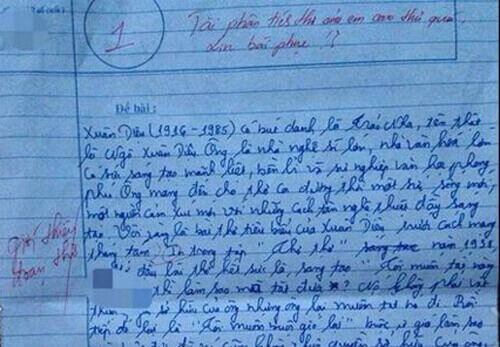 1
Tài phân tích thơ của em cao thủ quá,
xin bái phục !?
Đề bài:
Xuân Diệu (1916 - 1985) có bút danh là Trảo Nha, tên thật
là Ngô Xuân Diệu. Ông là nhà nghệ sĩ lớn, nhà văn hóa lớn
có sức sáng tạo mãnh liệt, bền bỉ và sự nghiệp văn học phong
phú. Ông mang đến cho thơ ca đương thời một sức sống mới,
một nguồn cảm xúc mới với những cách tân nghệ thuật đầy sáng
tạo. Vội vàng là bài thơ tiêu biểu của Xuân Diệu trước cách mạng
tháng tám. In trong tập "Thơ thơ" năm 1938
đầu bài thơ hết sức là sáng tạo "Tôi muốn tắt nắng
thì làm sao mà tắt được? nó không phải vật
sở hữu của ông nhưng ông lại muốn tự do đi. Rồi
tiếp đó lại là "Tôi muốn buộc gió lại" buộc gió làm sao
giới thiệu